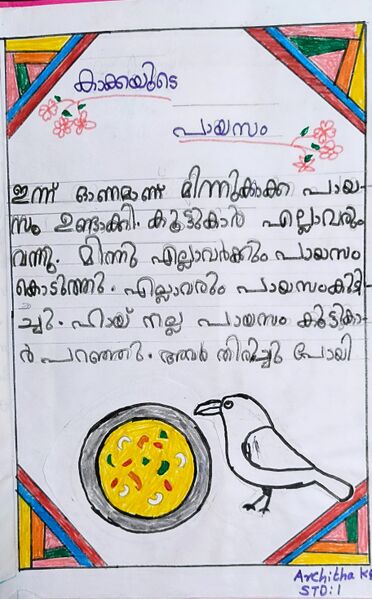 കാക്കയുടെ
പായസം
ഇന്ന് ഓണമാണ് മിന്നുകാക്ക പായ-
സം ഉണ്ടാക്കി. കൂട്ടുകാർ എല്ലാവരും
വന്നു. മിന്നു എല്ലാവർക്കും പായസം
കൊടുത്തു. എല്ലാവരും പായസംകുടി-
ച്ചു. ഹായ് നല്ല പായസം കൂട്ടുകാ-
ർ പറഞ്ഞു. അവർ തിരിച്ചു പോയി
Architha
STD:1